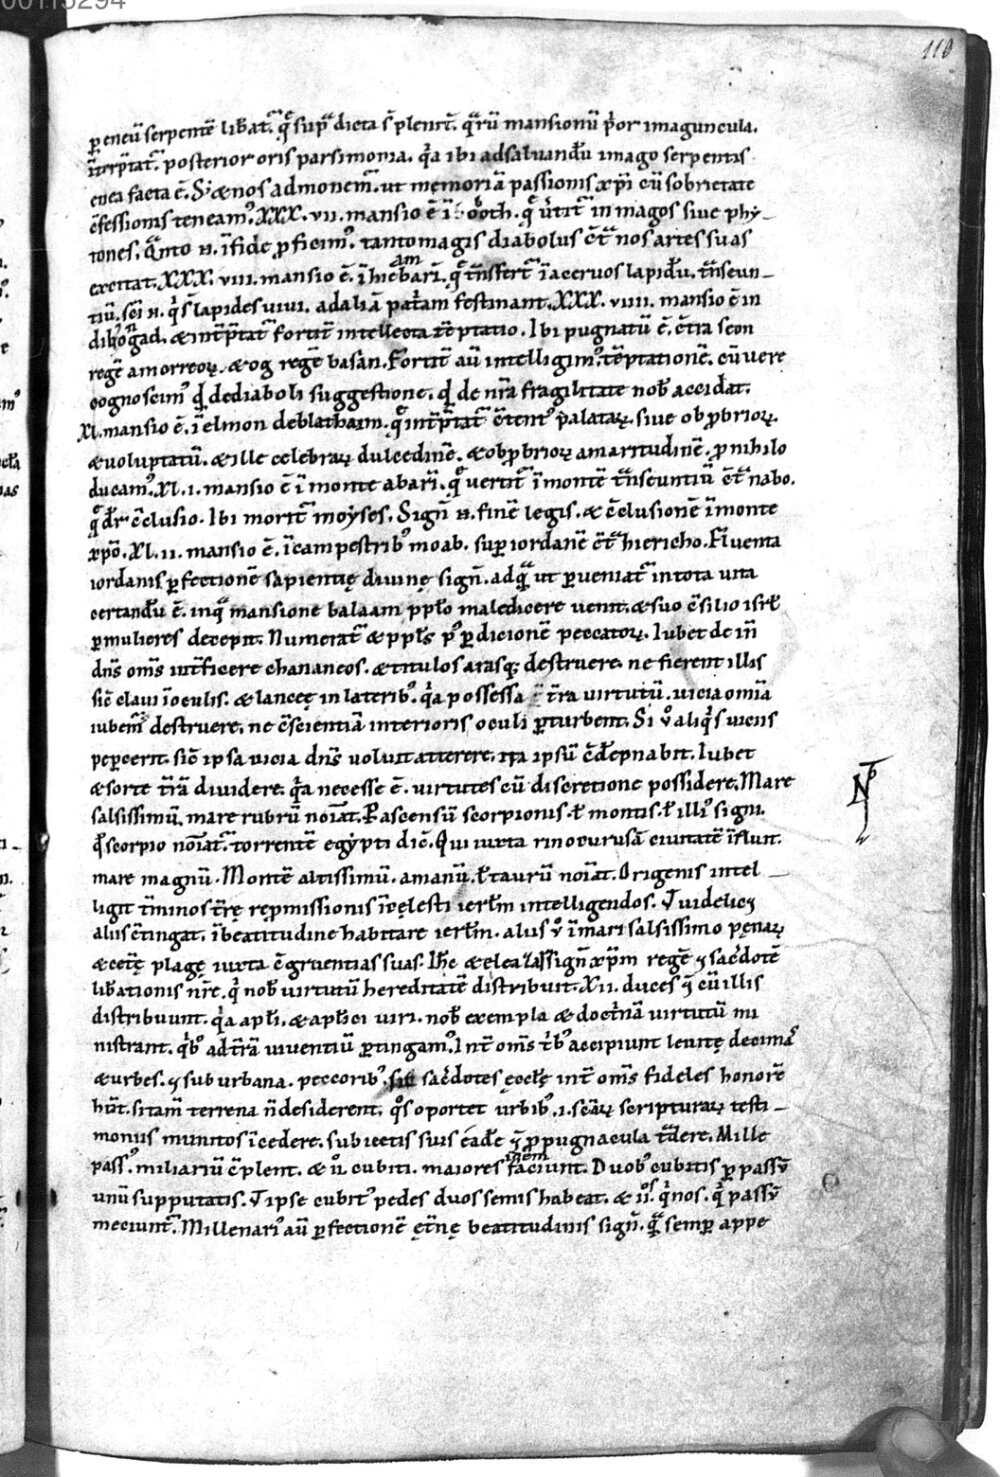 00115294
110
p eneu serpente libat. q supdicta splent. qru mansionu prior imaguncula.
irrptat. posterior oris parsimonia. qa ibi adsaluandu imago serpentis
enea facta ē. S; & nos admonem. ut memoriā passionis xpi cū sobrietate
cfessionis teneam. XXX. vii. mansio ē ī oboth. q utit in magos siue phy-
tones. Qnto n. ifide pficim. tantomagis diabolus ct nos artes suas
exercitat. XXX. viii. mansio ē. ī hiebari. q tnsfert īacervos lapidū. tnseun-
tiū. sci n. qs lapides vivi. adaliā patam festinant. XXX. viiii. mansio ē in
dibongad. & intptat fortit intellecta teptatio. Ibi pugnatū ē. ctra seon
regē amorreor. & og regē basan. Fortit aū intelligim. teptationē. cū vere
cognoscim qd dediaboli suggestione. qd de nra fragilitate nob accidat.
XL. mansio ē. ī elmon deblathaim. q intptat ctemt palatar. siue obpbrior.
& voluptatū. & ille celebrar dulcedinē. & obpbrior amaritudinē. p nihilo
ducam. XL. i. mansio ē ī monte abari. q vertit ī montē tnseuntiū ct nabo.
q dr cclusio. Ibi morit moyses. Sign n. finē legis. & cclusionē īmonte
xpo. XL. ii. mansio ē. īcampestrib moab. sup iordanē ct hiericho. Fluenta
iordanis pfectionē sapientię divinę sign. adqm ut pveniat intota vita
certandū ē. inqa mansione balaam pplo maledicere venit. & suo csilio isrl
p mulieres decepit. Numerat & ppls p pdicionē peccator. Iubet de in
dns oms intficere chananeos. & titulos arasq; destruere. ne fierent illis
sic clavi īoculis. & lanceę in laterib. qa possessa tra virtutū. vicia omīa
iubem destruere. ne cscientiā interioris oculi pturbent. Si v aliqs viciis
pepcerit. sic ipsa vicia dns voluit atterere. ita ipsū cdepnabit. Iubet
& sorte trā dividere. qa necesse ē. virtutes cū discretione possidere. Mare
salsissimū. mare rubrū noiat. P ascensū scorpionis. l montis. l illi signi.
q scorpio noiat. torrentē egypti dic. Qui iuxta rinocurusā civitatē influit.
mare magnū. Montē altissimū. amanū. l taurū noiat. Origenis intel-
ligit tminos tre repmissionis īcęlesti ierlm intelligendos. Tuidelic&
alius ctingat. ībeatitudine habitare ierlm. alius v īmari salsissimo pęnar
& cetę plagę iuxta cgruentias suas. Ihc & eleazar sign xpm regē & sacdotē
libationis nre. q nob virtutū hereditatē distribuit. XII. duces q cū illis
distribuunt. qa apli. & aplici viri. nob exempla & doctnā virtutū mi
nistrant. qb ad trā viventiū ptingam. Int oms trb accipiunt levitę decima
& urbes. & suburbana. peccorib. sacdotes ęcclę int oms fideles honorē
hnt. sitam terrena ndesiderent. qs oportet urbib. i. scar scripturar testi-
moniis munitos īcedere. subiectis suis eade & ppugnacula tdere. Mille
pass. miliariū cplent. & ii cubiti. maiores faciunt. Duob cubitis p passū
unū supputatis. Tipse cubit pedes duos semis habeat. & ii. qnos. q passū
meciunt. Millenari aū pfectionē ętnę beatitudinis sign. qa semp appe